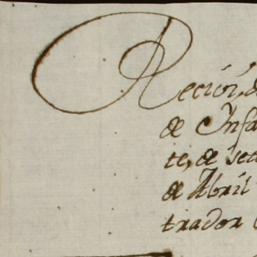 Reción,
de Infa
te, de
de Abril
trador